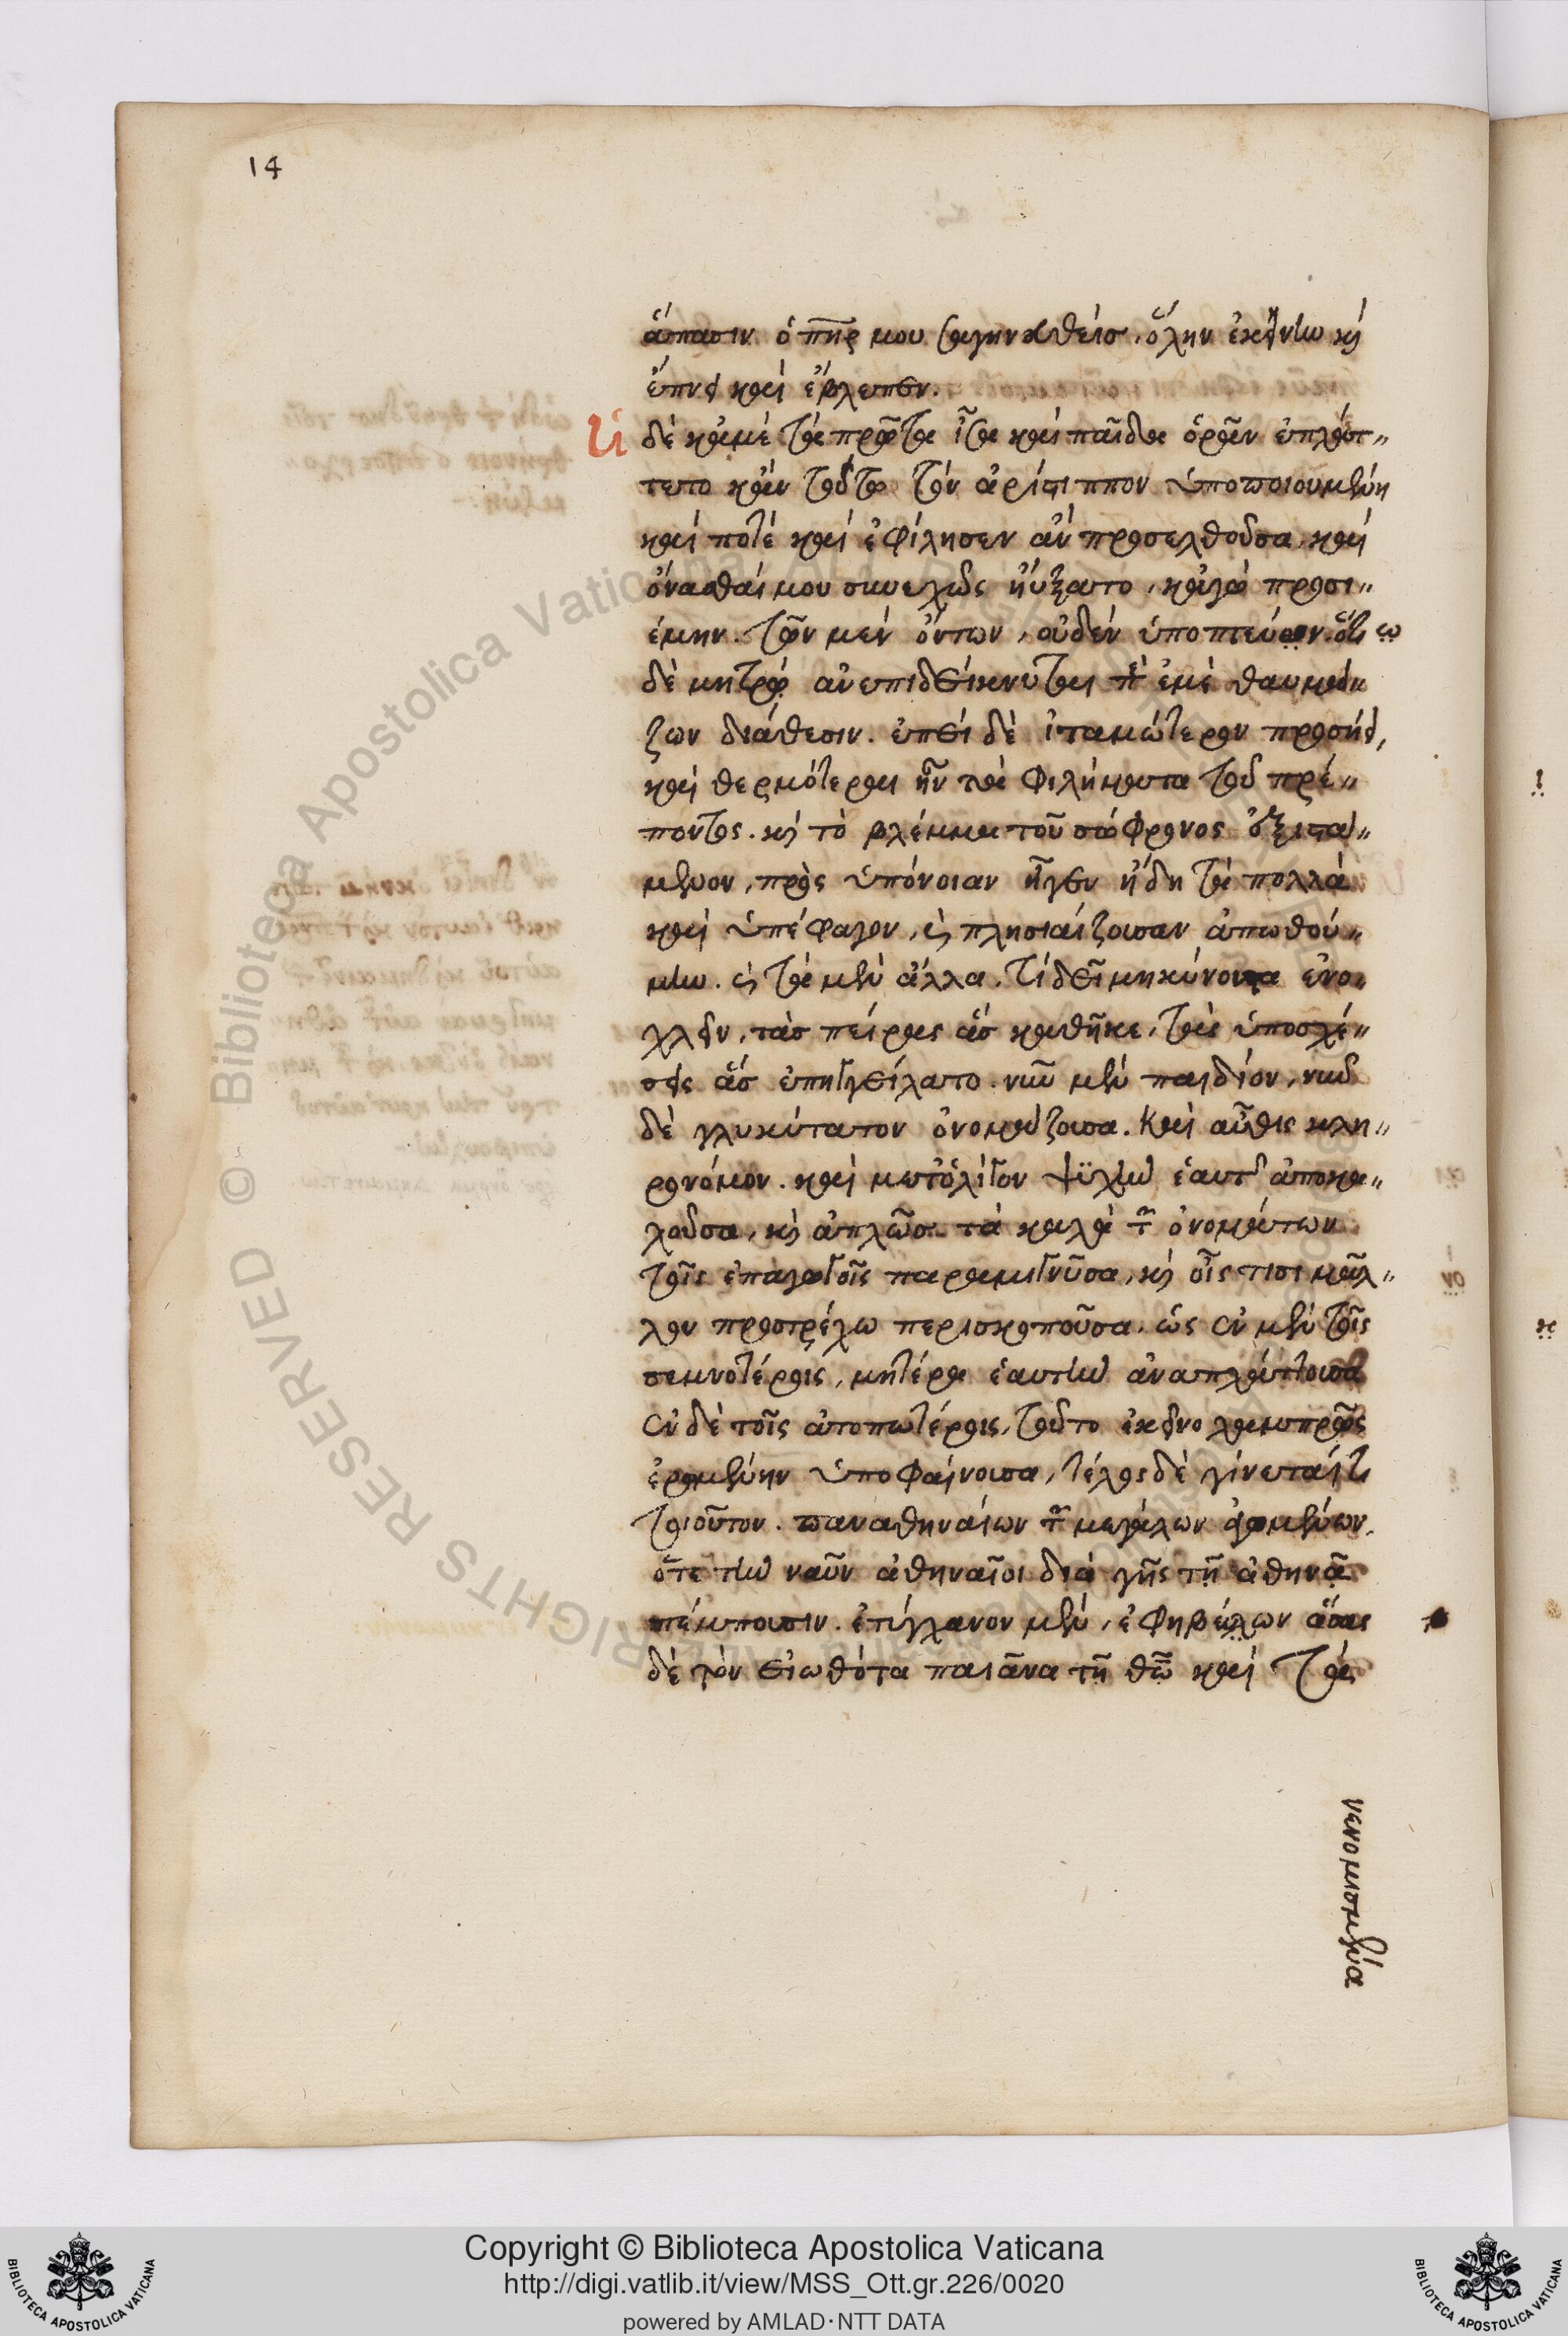 14
ἅπασιν ὁ πηρ μου σαγηνευθείς, ὅλην ἐκείνην καὶ
ἔπνει καὶ ἔβλεπεν.
Ἡ
δὲ κἀμὲ τὰ πρῶτα ἴσα καὶ παῖδα ὁρᾶν ἐπλάτ〃
τετο κἀν τούτω τὸν ἀρίστιππον ὑποποιουμένη
καί ποτέ καὶ ἐφίλησεν ἂν προσελθοῦσα, καὶ
ὄνασθαί μου συνεχῶς ηὔξατο, κἀγὼ προσι〃
έμην. τῶν μὲν ὄντων, οὐδὲν ὑποπτεύων. ὅτι
δὲ μητρώαν ἐπιδείκνυται πρὸς ἐμὲ θαυμά〃
ζων διάθεσιν. ἐπεὶ δὲ ἰταμώτερον προσήει,
καὶ θερμότερα ἦν τὰ φιλήματα τοῦ πρέ〃
ποντος. καὶ τὸ βλέμμα τοῦ σώφρονος ἐξιστά〃
μενον, πρὸς ὑπόνοιαν ἦγεν ἤδη τὰ πολλὰ
καὶ ὑπέφευγον, καὶ πλησιάζουσαν ἀπωθού〃
μην. καὶ τὰ μὲν ἄλλα, τί δεῖ μηκύνοντα ἐνο〃
χλεῖν, τὰς πείρας ἃς καθῆκε, τὰς ὑποσχέ〃
σεις ἃς ἐπηγγείλατο. νῦν μὲν παιδίον, νῦν
δὲ γλυκύτατον ὀνομάζουσα. καὶ αὖθις κλη〃
ρονόμον. καὶ μετ'ὀλίγον ψυχὴν ἑαυτῆς ἀποκα〃
λοῦσα, καὶ ἁπλῶς τὰ καλὰ τῶν ὀνομάτων
τοῖς ἐπαγωγοῖς παραμιγνῦσα, καὶ οἷς τισι μᾶλ〃
λον προστρέχω περισκοποῦσα. ὡς ἐν μὲν τοῖς
σεμνοτέροις, μητέρα ἑαυτὴν ἀναπλάττουσα
ἐν δὲ τοῖς ἀτοπωτέροις, τοῦτο ἐκεῖνο λαμπρῶς
ἐρωμένην ὑποφαίνουσα, τέλος δὲ γίνεταί τι
τοιοῦτον. παναθηναίων τῶν μεγάλων ἀγομένων,
ὅτε τὴν ναῦν ἀθηναῖοι διὰ γῆς τῇ ἀθηνᾷ
πέμπουσιν. ἐτύγχανον μὲν, ἐφηβεύων ᾄσας
δὲ τὸν εἰωθότα παιᾶνα τῇ θεῷ καὶ τὰ
νενομισμένα
Copyright © Biblioteca Apostolica Vaticana
http://digi.vatlib.it/view/MSS_Ott.gr.226/0020
powered by AMLAD·NTT DATA